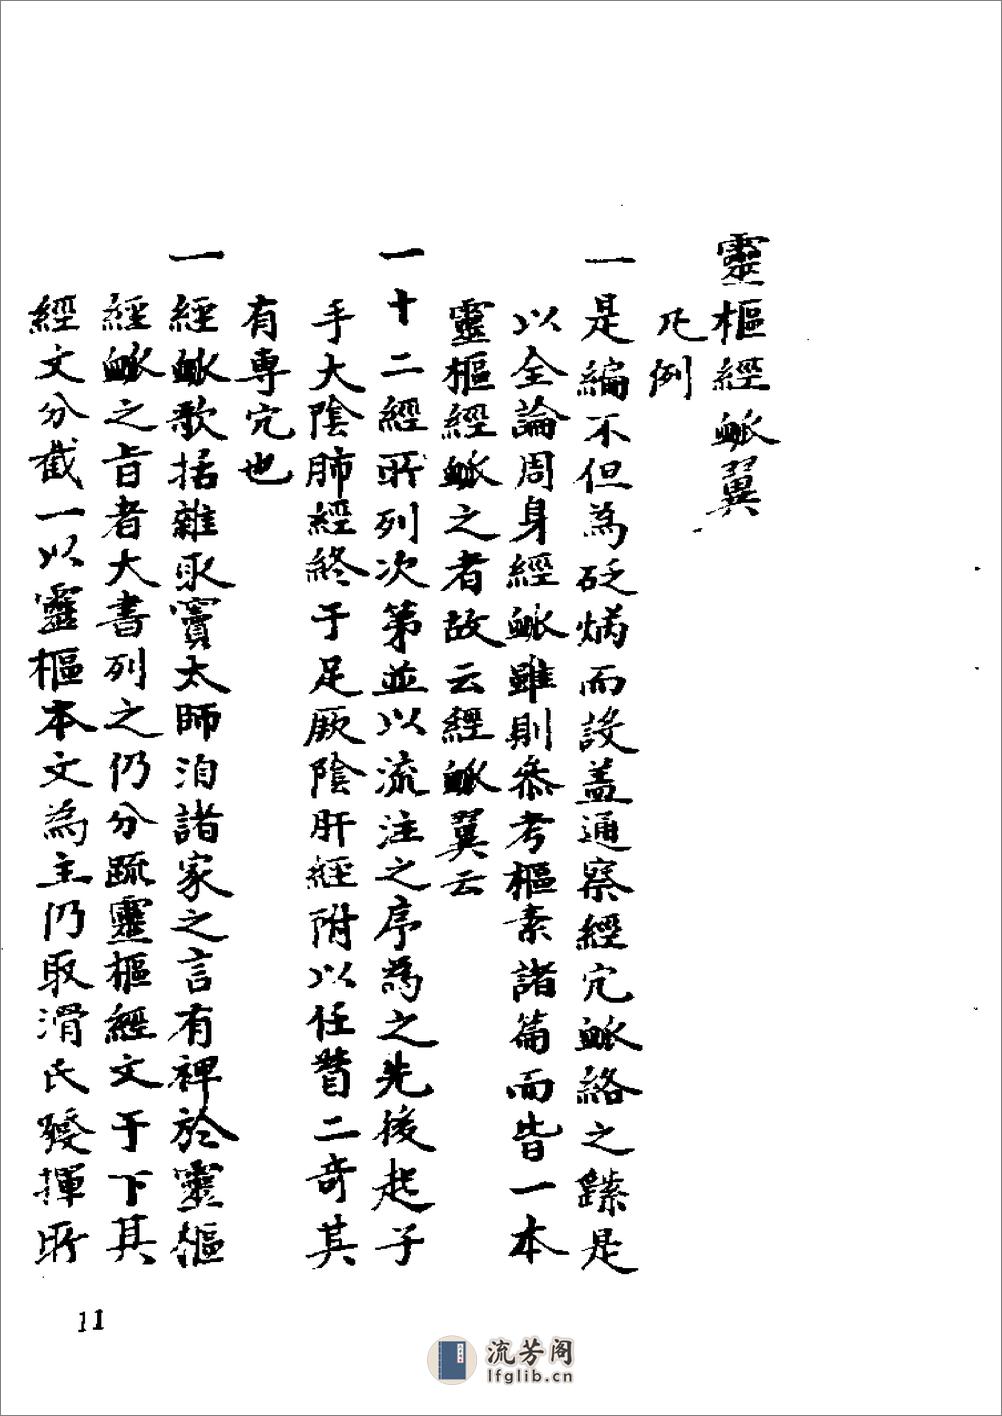 靈樞經脈翼
凡例
一是編不但為砭焫而設蓋通察經穴脈絡之繇是
以全論周身經脈雖則參考樞素諸篇而皆一本
靈樞經脈之者故云經脈翼云
一十二經所列次第並以流注之序為之先後起于
手大陰肺經終于足厥陰肝經附以任督二奇其
有專穴也
一經脈歌括雜取竇太師洎諸家之言有裨於靈樞
經脈之旨者大書列之仍分疏靈樞經文于下其
經文分截一以靈樞本文為主仍取滑氏發揮所
11
流芳阁
lfglib.cn